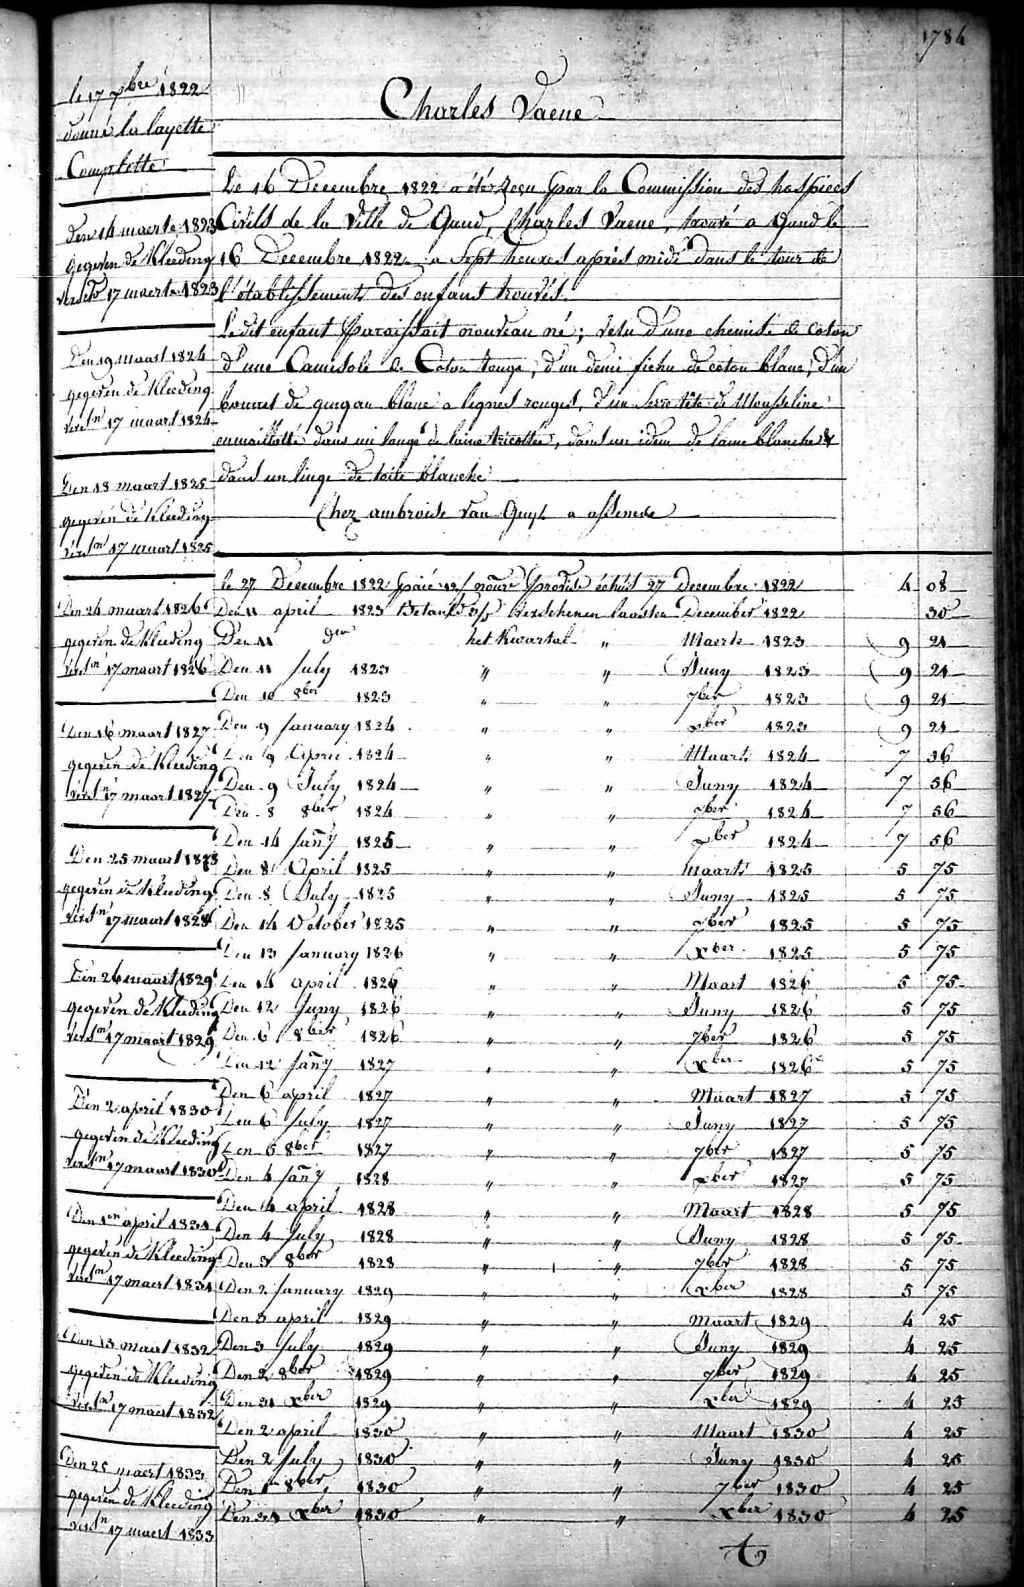 1784
Charles Vaene
le 17 xbre 1822
donné la layette
Complette
Den 14 maerte 1823
gegeven de Kleeding
verschn 17 maerte 1823
Den 19 maart 1824
gegeven de Kleeding
versn 17 maart 1824
Den 18 maart 1825
gegeven de Kleeding
versn 17 maart 1825
Den 24 maart 1826
gegeven de Kleeding
versn 17 maart 1826
Den 16 maart 1827
gegeven de Kleeding
versn 17 maart 1827
Den 25 maart 1828
gegeven de Kleeding
versn 17 maart 1828
Den 26 maart 1829
gegeven de Kleeding
versn 17 maart 1829
Den 2 april 1830
gegeven de Kleeding
versn 17 maart 1830
Den 1en april 1831
gegeven de Kleeding
versn 17 maert 1831
Den 13 maert 1832
gegeven de Kleeding
versn 17 maert 1832
Den 25 maert 1833
gegeven de Kleeding
versn 17 maert 1833
Le 16 Decembre 1822 a été reçu par la Commission des hospices
Civils de la Ville de Gand, Charles Vaene, trouvé a Gand le
16 Decembre 1822 a Sept heures après midi dans le tour de
l'établissement des enfans trouvés.
Ledit enfant paraissait nouveau né; vetu d'une chemise de coton
d'une Camisole de Coton rouge, d'un demi fichu de coton blanc, d'un
bonnet de gingan blanc a lignes rouges, d'un Serre tête de Mousseline
enmaillotté dans un lange de laine tricottée, dans un idem de laine blanche &
dans un linge de toile blanche
Chez ambroise van Guyt a assenede
le 27 Decembre 1822 payé pour échut 27 Decembre 1822 4 08
Den 11 april 1823 Betaald Verschenen laasten December 1822 30
Den 11 do het Kwartal " Maerte 1823 9 21
Den 11 July 1823 " " Juny 1823 9 21
Den 10 8ber 1823 " " 7ber 1823 9 21
Den 9 January 1824 " " xber 1823 9 21
Den 9 April 1824 " " Maarts 1824 7 56
Den 9 July 1824 " " Juny 1824 7 56
Den 8 8ber 1824 " " 7ber 1824 7 56
Den 14 Jañy 1825 " " xber 1824 7 56
Den 8 April 1825 " " maarts 1825 5 75
Den 8 July 1825 " " Juny 1825 5 75
Den 14 October 1825 " " 7ber 1825 5 75
Den 13 January 1826 " " xber 1825 5 75
Den 14 april 1826 " " Maart 1826 5 75
Den 12 Juny 1826 " " Juny 1826 5 75
Den 6 8ber 1826 " " 7ber 1826 5 75
Den 12 Jañy 1827 " " xber 1826 5 75
Den 6 april 1827 " " Maart 1827 5 75
Den 6 July 1827 " " Juny 1827 5 75
Den 5 8ber 1827 " " 7ber 1827 5 75
Den 4 Jañy 1828 " " xber 1827 5 75
Den 4 april 1828 " " Maart 1828 5 75
Den 4 July 1828 " " Juny 1828 5 75
Den 3 8ber 1828 " " 7ber 1828 5 75
Den 2 January 1829 " " xber 1828 5 75
Den 3 april 1829 " " maart 1829 4 25
Den 3 July 1829 " " Juny 1829 4 25
Den 2 8ber 1829 " " 7ber 1829 4 25
Den 31 xber 1829 " " xber 1829 4 25
Den 2 april 1830 " " Maart 1830 4 25
Den 2 July 1830 " " Juny 1830 4 25
Den 1n 8ber 1830 " " 7ber 1830 4 25
Den 31 xber 1830 " " xber 1830 4 25